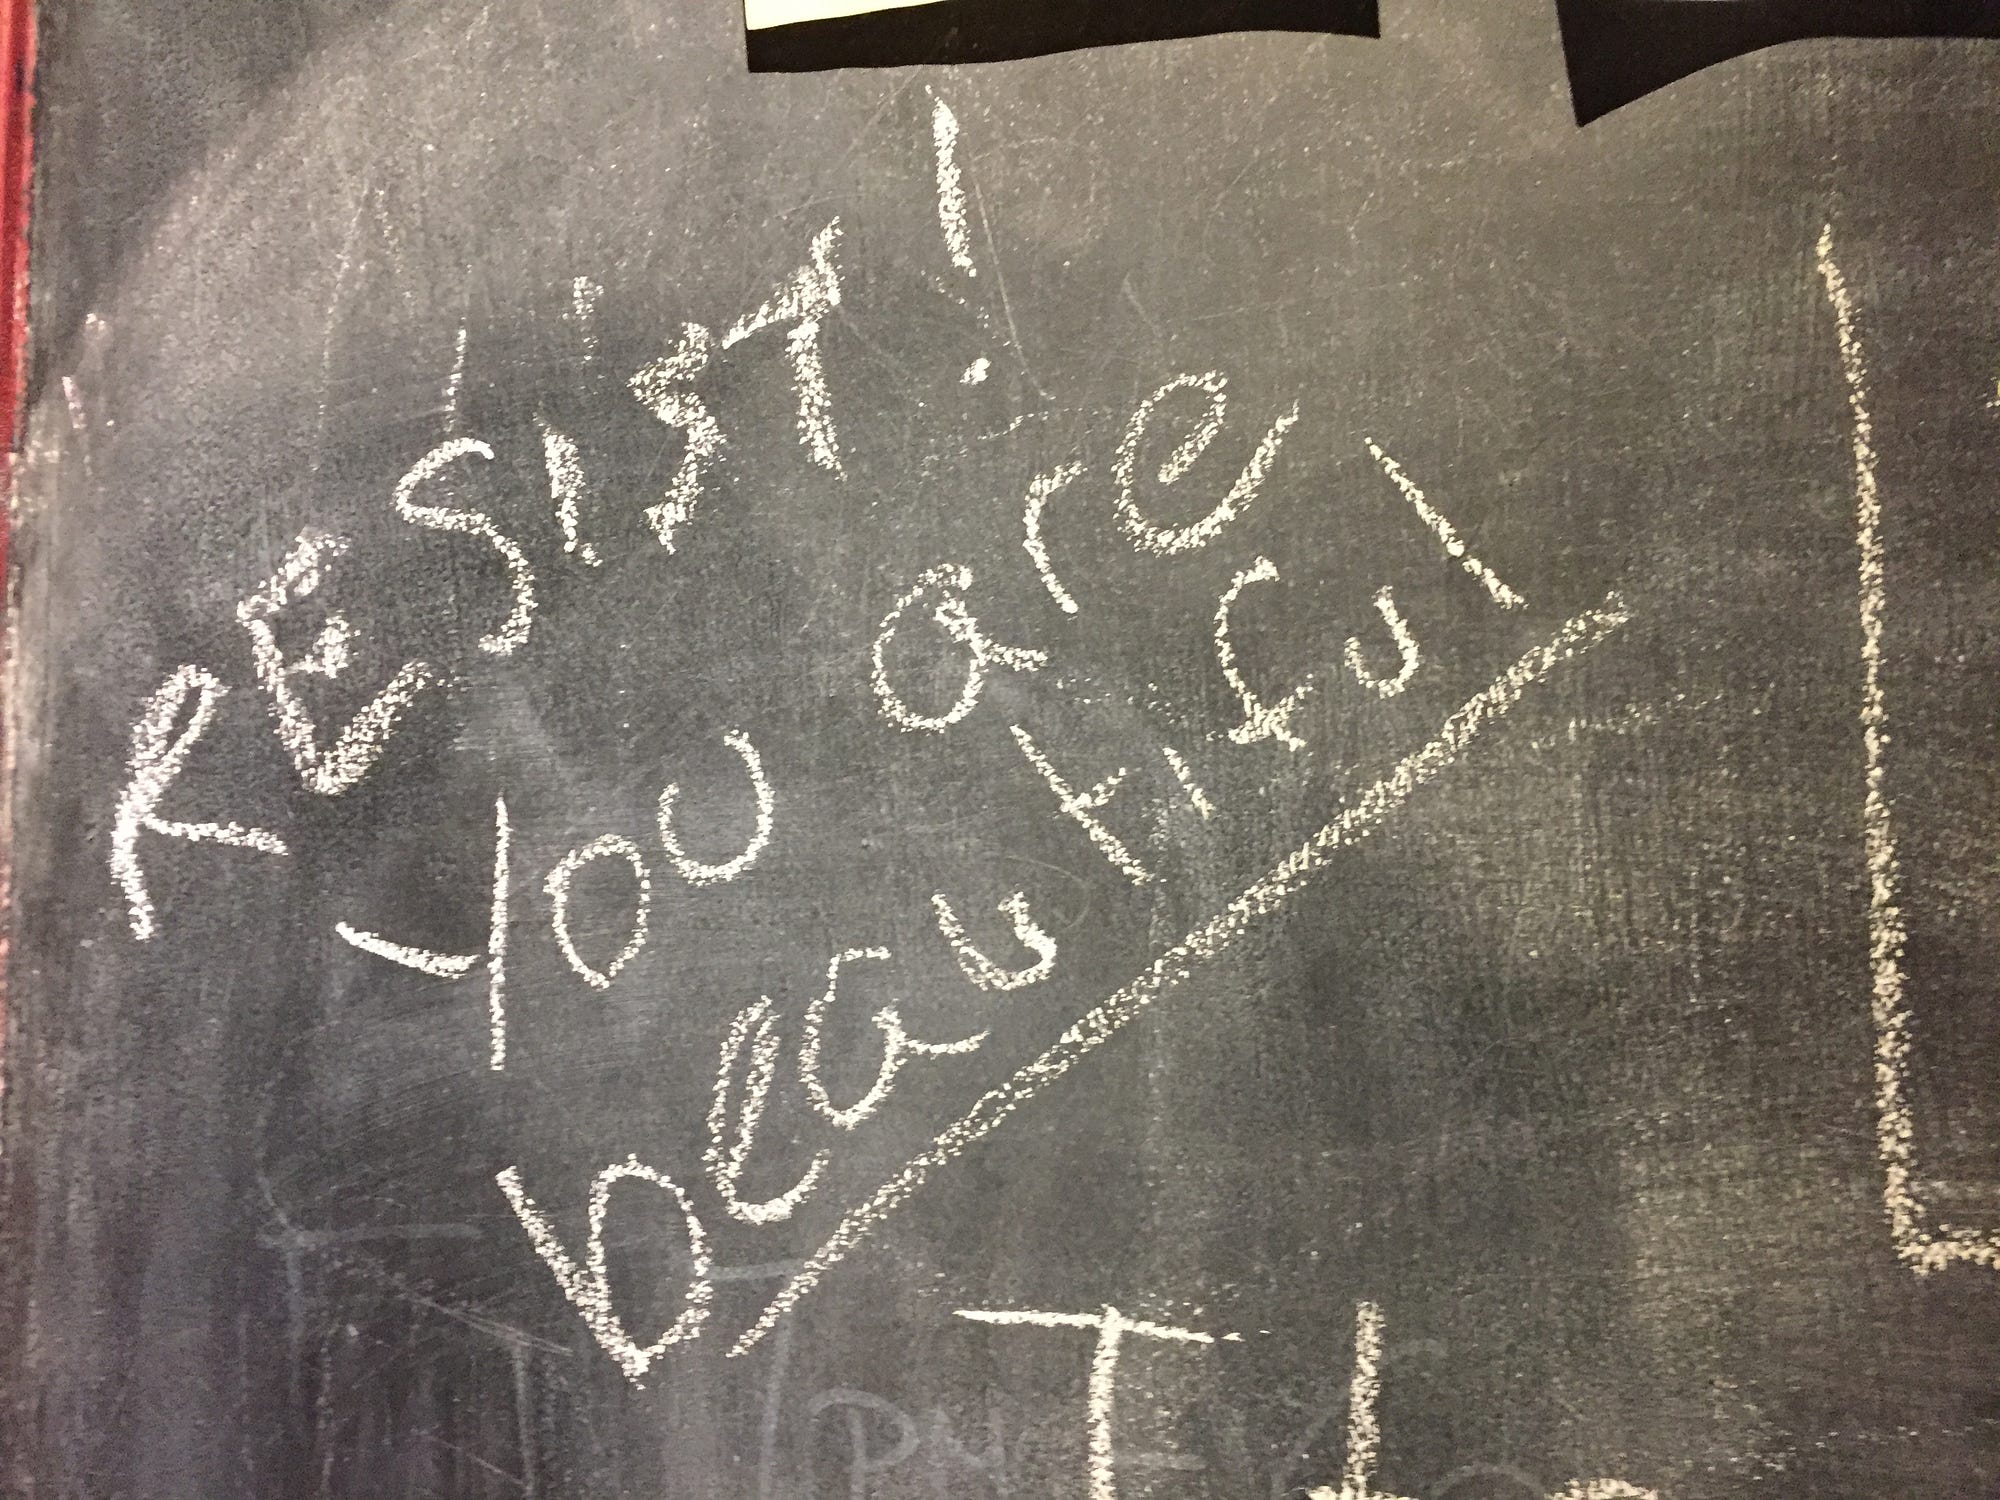 RESIST!
You are
beautiful